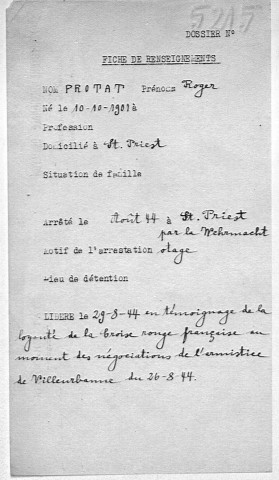 5215
DOSSIER N°
FICHE DE RENSEIGNEMENTS
NOM PROTAT Prénoms Roger
Né le 10-10-1901 à
Profession
Domicilié à St. Priest
Situation de famille
Arrêté le Août 44 à St. Priest
par la Wehrmacht
Motif de l'arrestation otage
Lieu de détention
LIBERE le 29-8-44 en témoignage de la
loyauté de la Croise rouge française au
moment des négociations de l'armistice
de Villeurbanne du 26-8-44.